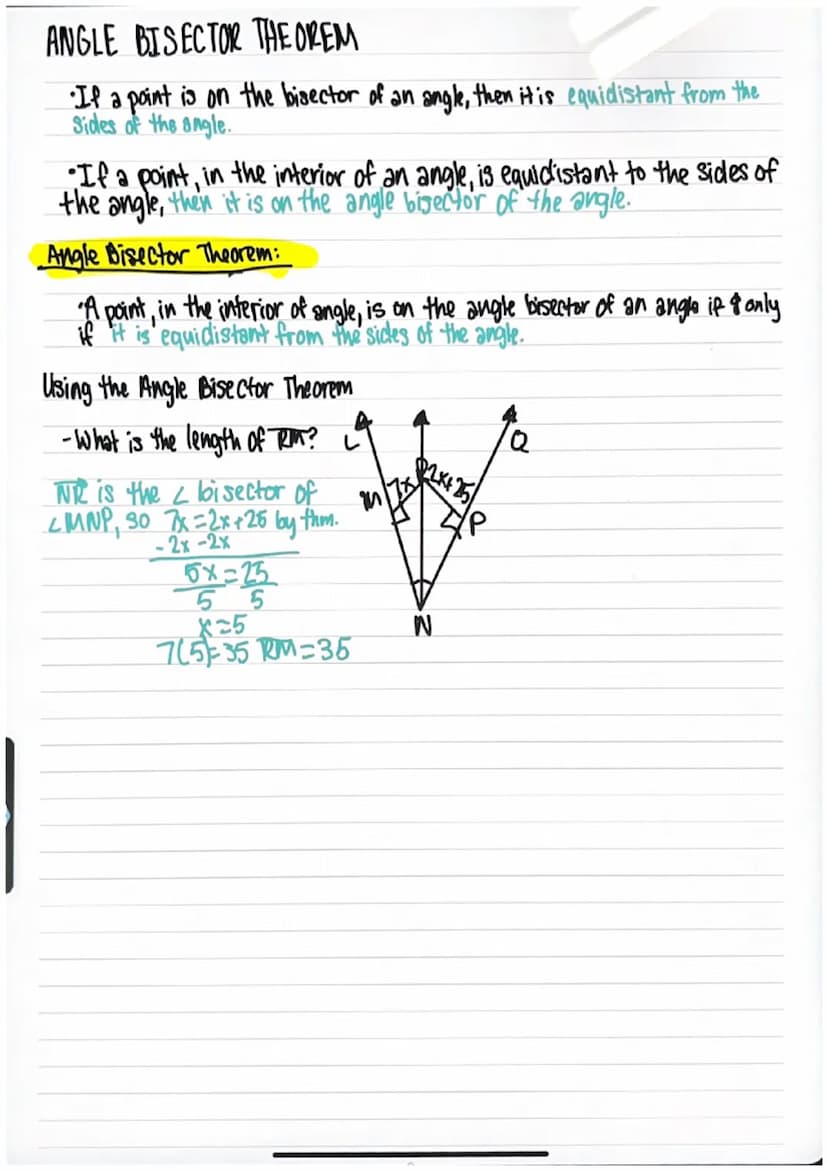 ANGLE BISECTOR THEOREM
•If a point is on the bisector of an angle, then it is equidistant from the
sides of the angle.
•If a point, in the interior of an angle, is equidistant to the sides of
the angle, then it is on the angle bisector of the angle.
Angle Bisector Theorem:
•A point, in the interior of angle, is on the angle bisector of an angle if & only
if it is equidistant from the sides of the angle.
Using the Angle Bisector Theorem
-What is the length of RM?
L
Q
R
M
7x
2x+25
P
N
NR is the ∠ bisector of
∠MNP, so 7x=2x+25 by thm.
-2x -2x
5x=25
5 5
x=5
7(5)=35 RM=35